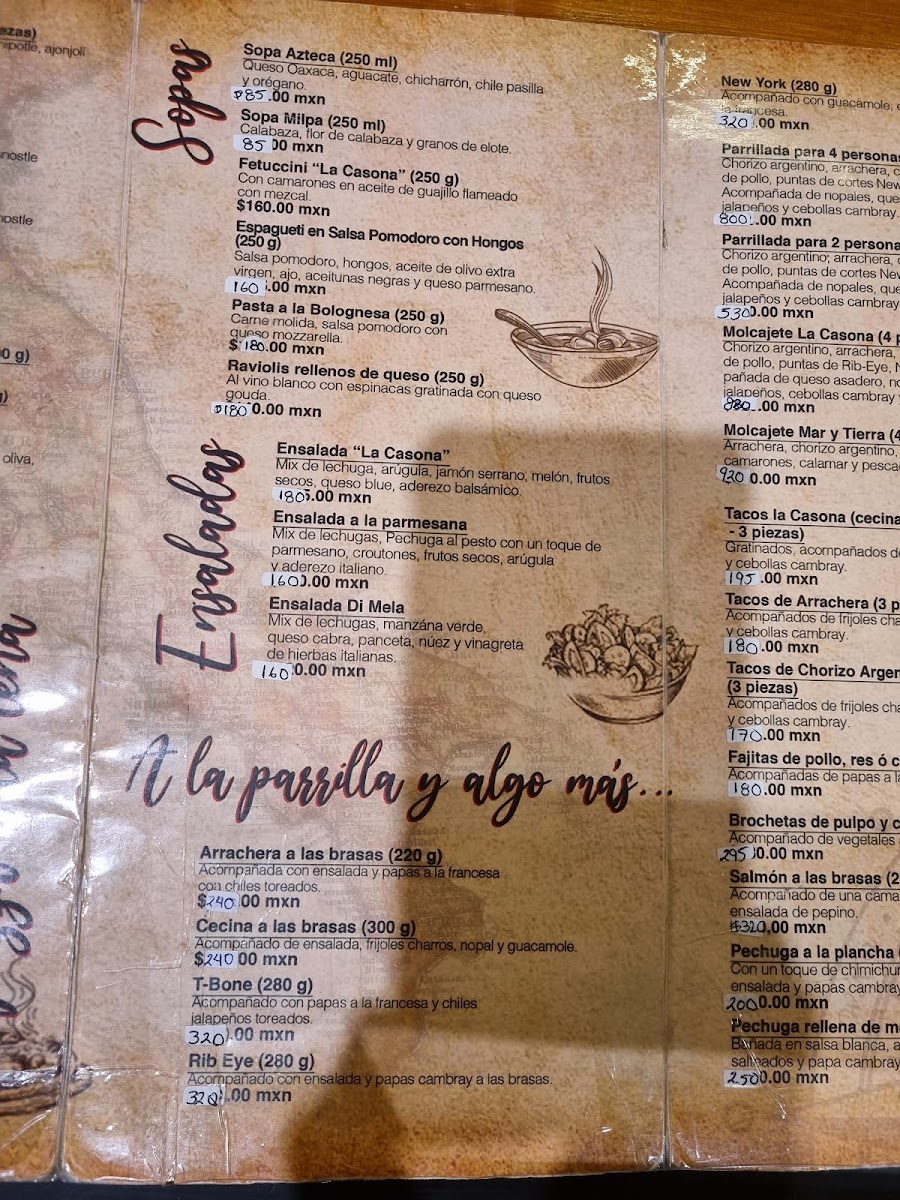 ezas)
ipotle, ajonjolí
nostle
nostle
0 g)
oliva,
Sopas
Sopa Azteca (250 ml)
Queso Oaxaca, aguacate, chicharrón, chile pasilla
y orégano.
$85.00 mxn
Sopa Milpa (250 ml)
Calabaza, flor de calabaza y granos de elote.
85 00 mxn
Fetuccini “La Casona” (250 g)
Con camarones en aceite de guajillo flameado
con mezcal.
$160.00 mxn
Espagueti en Salsa Pomodoro con Hongos
(250 g)
Salsa pomodoro, hongos, aceite de olivo extra
virgen, ajo, aceitunas negras y queso parmesano.
160 .00 mxn
Pasta a la Bolognesa (250 g)
Carne molida, salsa pomodoro con
queso mozzarella.
$180.00 mxn
Raviolis rellenos de queso (250 g)
Al vino blanco con espinacas gratinada con queso
gouda.
$180 0.00 mxn
Ensaladas
Ensalada “La Casona”
Mix de lechuga, arúgula, jamón serrano, melón, frutos
secos, queso blue, aderezo balsámico.
180 .00 mxn
Ensalada a la parmesana
Mix de lechugas, Pechuga al pesto con un toque de
parmesano, croutones, frutos secos, arúgula
y aderezo italiano.
160 0.00 mxn
Ensalada Di Mela
Mix de lechugas, manzána verde,
queso cabra, panceta, núez y vinagreta
de hierbas italianas.
160 0.00 mxn
A la parrilla y algo más...
Arrachera a las brasas (220 g)
Acompañada con ensalada y papas a la francesa
con chiles toreados.
$240.00 mxn
Cecina a las brasas (300 g)
Acompañado de ensalada, frijoles charros, nopal y guacamole.
$240 00 mxn
T-Bone (280 g)
Acompañado con papas a la francesa y chiles
jalapeños toreados.
320 .00 mxn
Rib Eye (280 g)
Acompañado con ensalada y papas cambray a las brasas.
320 .00 mxn
New York (280 g)
Acompañado con guacamole, e
la francesa.
320 .00 mxn
Parrillada para 4 personas
Chorizo argentino, arrachera, c
de pollo, puntas de cortes New
Acompañada de nopales, que
jalapeños y cebollas cambray.
800 .00 mxn
Parrillada para 2 persona
Chorizo argentino, arrachera, c
de pollo, puntas de cortes Nev
Acompañada de nopales, que
jalapeños y cebollas cambray
530 0.00 mxn
Molcajete La Casona (4 p
Chorizo argentino, arrachera,
de pollo, puntas de Rib-Eye, N
pañada de queso asadero, no
jalapeños, cebollas cambray
.00 mxn
Molcajete Mar y Tierra (4
Arrachera, chorizo argentino,
camarones, calamar y pesca
920 0.00 mxn
Tacos la Casona (cecina
- 3 piezas)
Gratinados, acompañados de
y cebollas cambray.
195 .00 mxn
Tacos de Arrachera (3 p
Acompañados de frijoles cha
y cebollas cambray.
180 .00 mxn
Tacos de Chorizo Argen
(3 piezas)
Acompañados de frijoles cha
y cebollas cambray.
170.00 mxn
Fajitas de pollo, res ó c
Acompañadas de papas a la
180.00 mxn
Brochetas de pulpo y c
Acompañado de vegetales
295 00.00 mxn
Salmón a las brasas (2
Acompañado de una cama
ensalada de pepino.
$320.00 mxn
Pechuga a la plancha (
Con un toque de chimichur
ensalada y papas cambray
200 0.00 mxn
Pechuga rellena de m
Bañada en salsa blanca, a
salteados y papa cambray
250 0.00 mxn